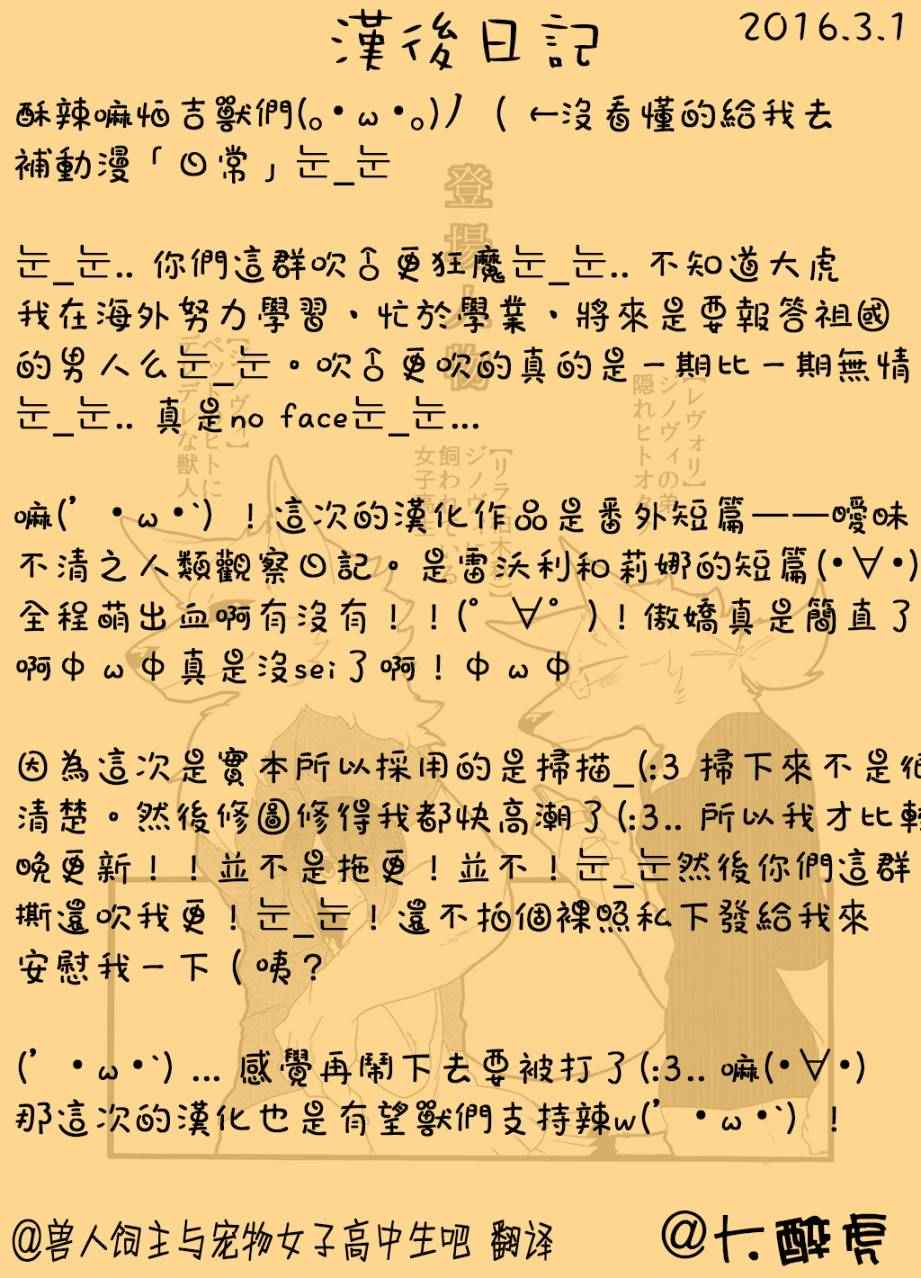 漢後日記
2016.3.1
酥辣嘛恓吉獸們(｡･ω･｡)丿 ( ←沒看懂的給我去
補動漫「日常」눈_눈
눈_눈.. 你們這群吹合更狂魔눈_눈.. 不知道大虎
我在海外努力學習、忙於學業、將來是要報答祖國
的男人么눈_눈。吹合更吹的真的是一期比一期無情
눈_눈.. 真是no face눈_눈...
嘛(′・ω・`) ！這次的漢化作品是番外短篇——曖昧
不清之人類觀察日記。是雷沃利和莉娜的短篇(・∀・)
全程萌出血啊有沒有！！(ﾟ∀ﾟ)！傲嬌真是簡直了
啊中ω中真是沒sei了啊！中ω中
因為這次是實本所以採用的是掃描_(:3 掃下來不是很
清楚。然後修圖修得我都快高潮了(:3.. 所以我才比較
晚更新！！並不是拖更！並不！눈_눈然後你們這群
撕還吹我更！눈_눈！還不拍個裸照私下發給我來
安慰我一下（咦？
(′・ω・`) ... 感覺再鬧下去要被打了(:3.. 嘛(・∀・)
那這次的漢化也是有望獸們支持辣w(′・ω・`) ！
登場人物
【レヴォリ】
ジノヴィの弟
隠れヒトオタ
飼われている
女子高生
ペットヒトに
デレな獣人
@兽人饲主与宠物女子高中生吧 翻译
@七醉虎